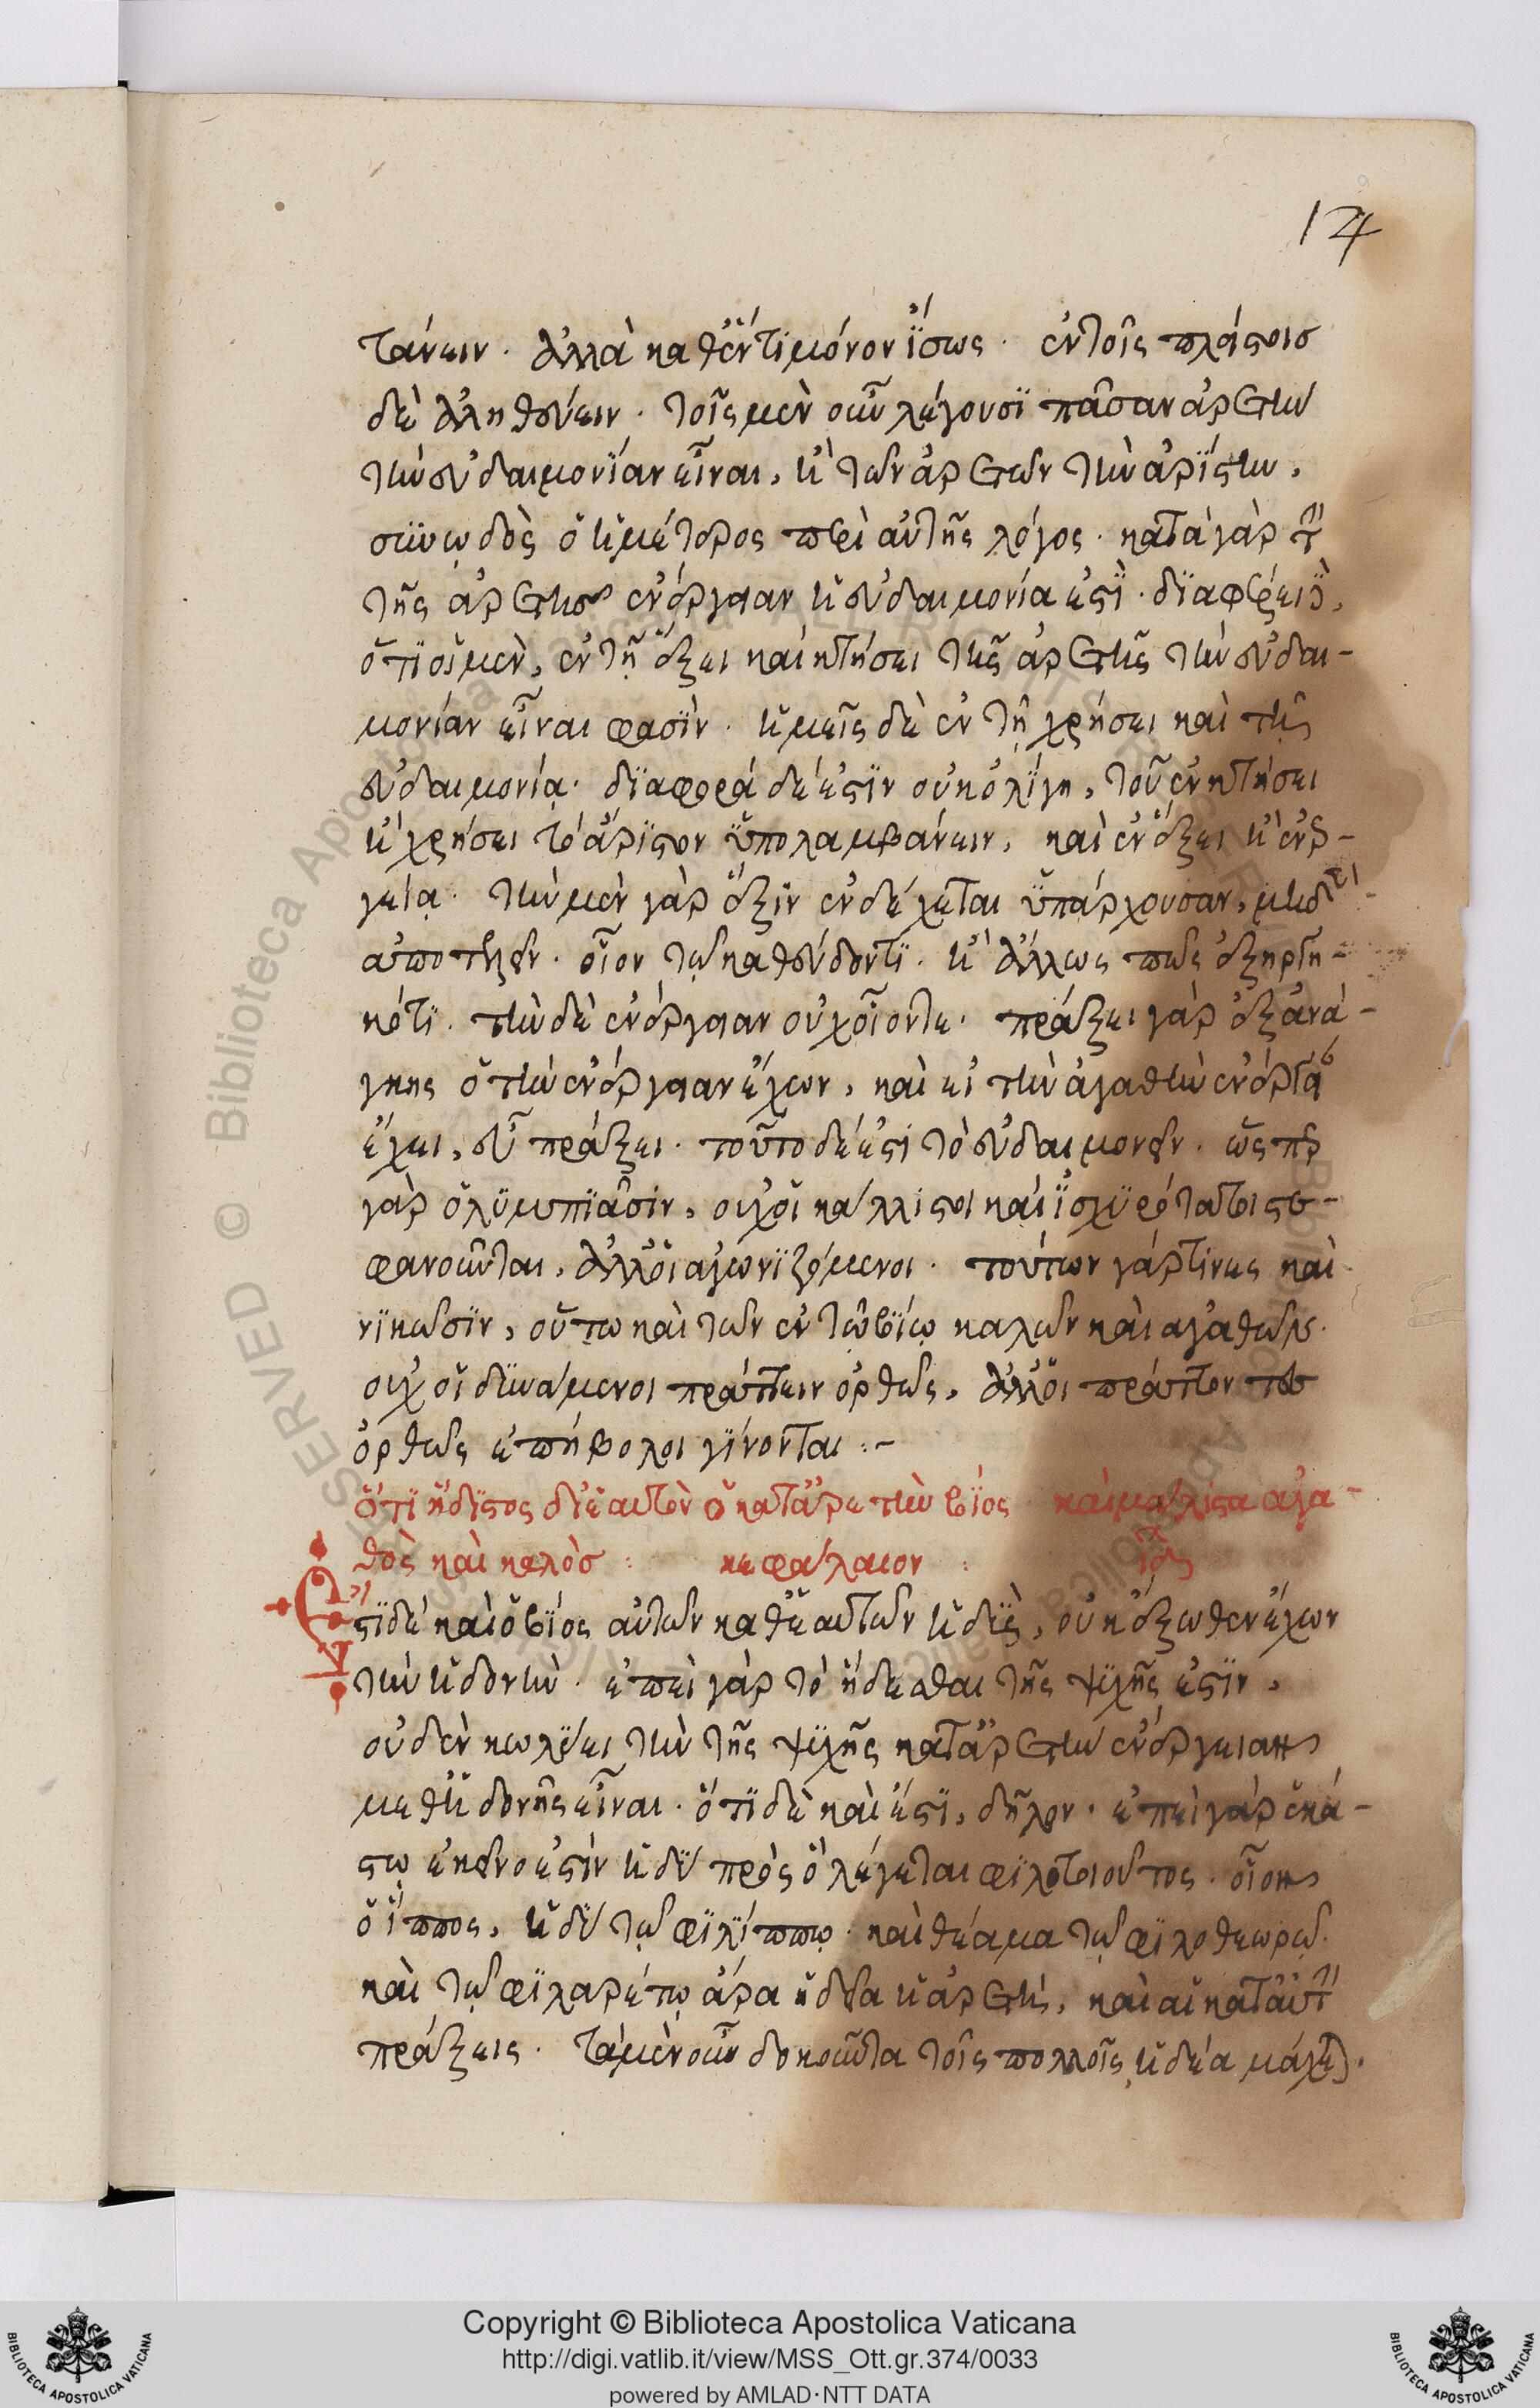 14
τάνειν. ἀλλὰ καθἕν τι μόνον ἴσως. ἐν τοῖς πλείστοις
δὲ ἀληθεύειν. τοῖς μὲν οὖν λέγουσι πᾶσαν ἀρετὴν
τὴν εὐδαιμονίαν εἶναι, ἢ τῶν ἀρετῶν τὴν ἀρίστην,
συνῳδὸς ὁ ἡμέτερος περὶ αὐτῆς λόγος. κατὰ γὰρ τὴν
τῆς ἀρετῆς ἐνέργειαν ἡ εὐδαιμονία ἐστί. διαφέρει δὲ,
ὅτι οἱ μὲν, ἐν τῇ ἕξει καὶ κτήσει τῆς ἀρετῆς τὴν εὐδαι-
μονίαν εἶναι φασὶν. ἡμεῖς δὲ ἐν τῇ χρήσει καὶ τῇ
εὐδαιμονίᾳ. διαφορά δέ ἐστιν οὐκ ὀλίγη, τοῦ ἐν κτήσει
ἢ χρήσει τὸ ἄριστον ὑπολαμβάνειν, καὶ ἐν ἕξει ἢ ἐνερ-
γείᾳ. τὴν μὲν γὰρ ἕξιν ἐνδέχεται ὑπάρχουσαν, μηδὲν
ἀποτελεῖν. οἷον τῷ καθεύδοντι. ἢ ἄλλως πως ἐξηργη-
κότι. τὴν δὲ ἐνέργειαν οὐχ οἷόντε. πράξει γὰρ ἐξ ἀνά-
γκης ὁ τὴν ἐνέργειαν ἔχων, καὶ εἰ τὴν ἀγαθὴν ἐνέργειαν
ἔχει, εὖ πράξει. τοῦτο δέ ἐστι τὸ εὐδαιμονεῖν. ὥσπερ
γὰρ ὀλυμπιᾶσιν, οὐχ οἱ κάλλιστοι καὶ ἰσχυρότατοι στε-
φανοῦνται, ἀλλ' οἱ ἀγωνιζόμενοι. τούτων γάρ τινες καὶ
νικῶσιν, οὕτω καὶ τῶν ἐν τῷ βίῳ καλῶν καὶ ἀγαθῶν.
οὐχ οἱ δυνάμενοι πράττειν ὀρθῶς, ἀλλ' οἱ πράττοντες
ὀρθῶς ἐπήβολοι γίνονται :-
ὅτι ἥδιστος δι' ἑαυτὸν ὁ κατ' ἀρετὴν βίος καὶ μάλιστα ἀγα-
θὸς καὶ καλὸς : κεφάλαιον :
ἔστι δὲ καὶ ὁ βίος αὐτῶν καθ' ἑαυτῶν ἡδὺς, οὐκ ἔξωθεν ἔχων
τὴν ἡδονὴν. ἐπεὶ γὰρ τὸ ἥδεσθαι τῆς ψυχῆς ἐστιν,
οὐδὲν κωλύει τὴν τῆς ψυχῆς κατ' ἀρετὴν ἐνέργειαν
μεθ' ἡδονῆς εἶναι. ὅτι δὲ καὶ ἔστι, δῆλον. ἐπεὶ γὰρ ἑκά-
στῳ ἐκεῖνο ἐστὶν ἡδὺ πρὸς ὃ λέγεται φιλοτοιοῦτος. οἷον
ὁ ἵππος, ἡδὺ τῷ φιλίππῳ. καὶ θέαμα τῷ φιλοθεωρῷ.
καὶ τῷ φιλαρέτῳ ἄρα ἡδεῖα ἡ ἀρετὴ, καὶ αἱ κατ' αὐτὴν
πράξεις. τὰ μὲν οὖν δοκοῦντα τοῖς πολλοῖς ἡδέα μάχεται.
Copyright © Biblioteca Apostolica Vaticana
http://digi.vatlib.it/view/MSS_Ott.gr.374/0033
powered by AMLAD·NTT DATA